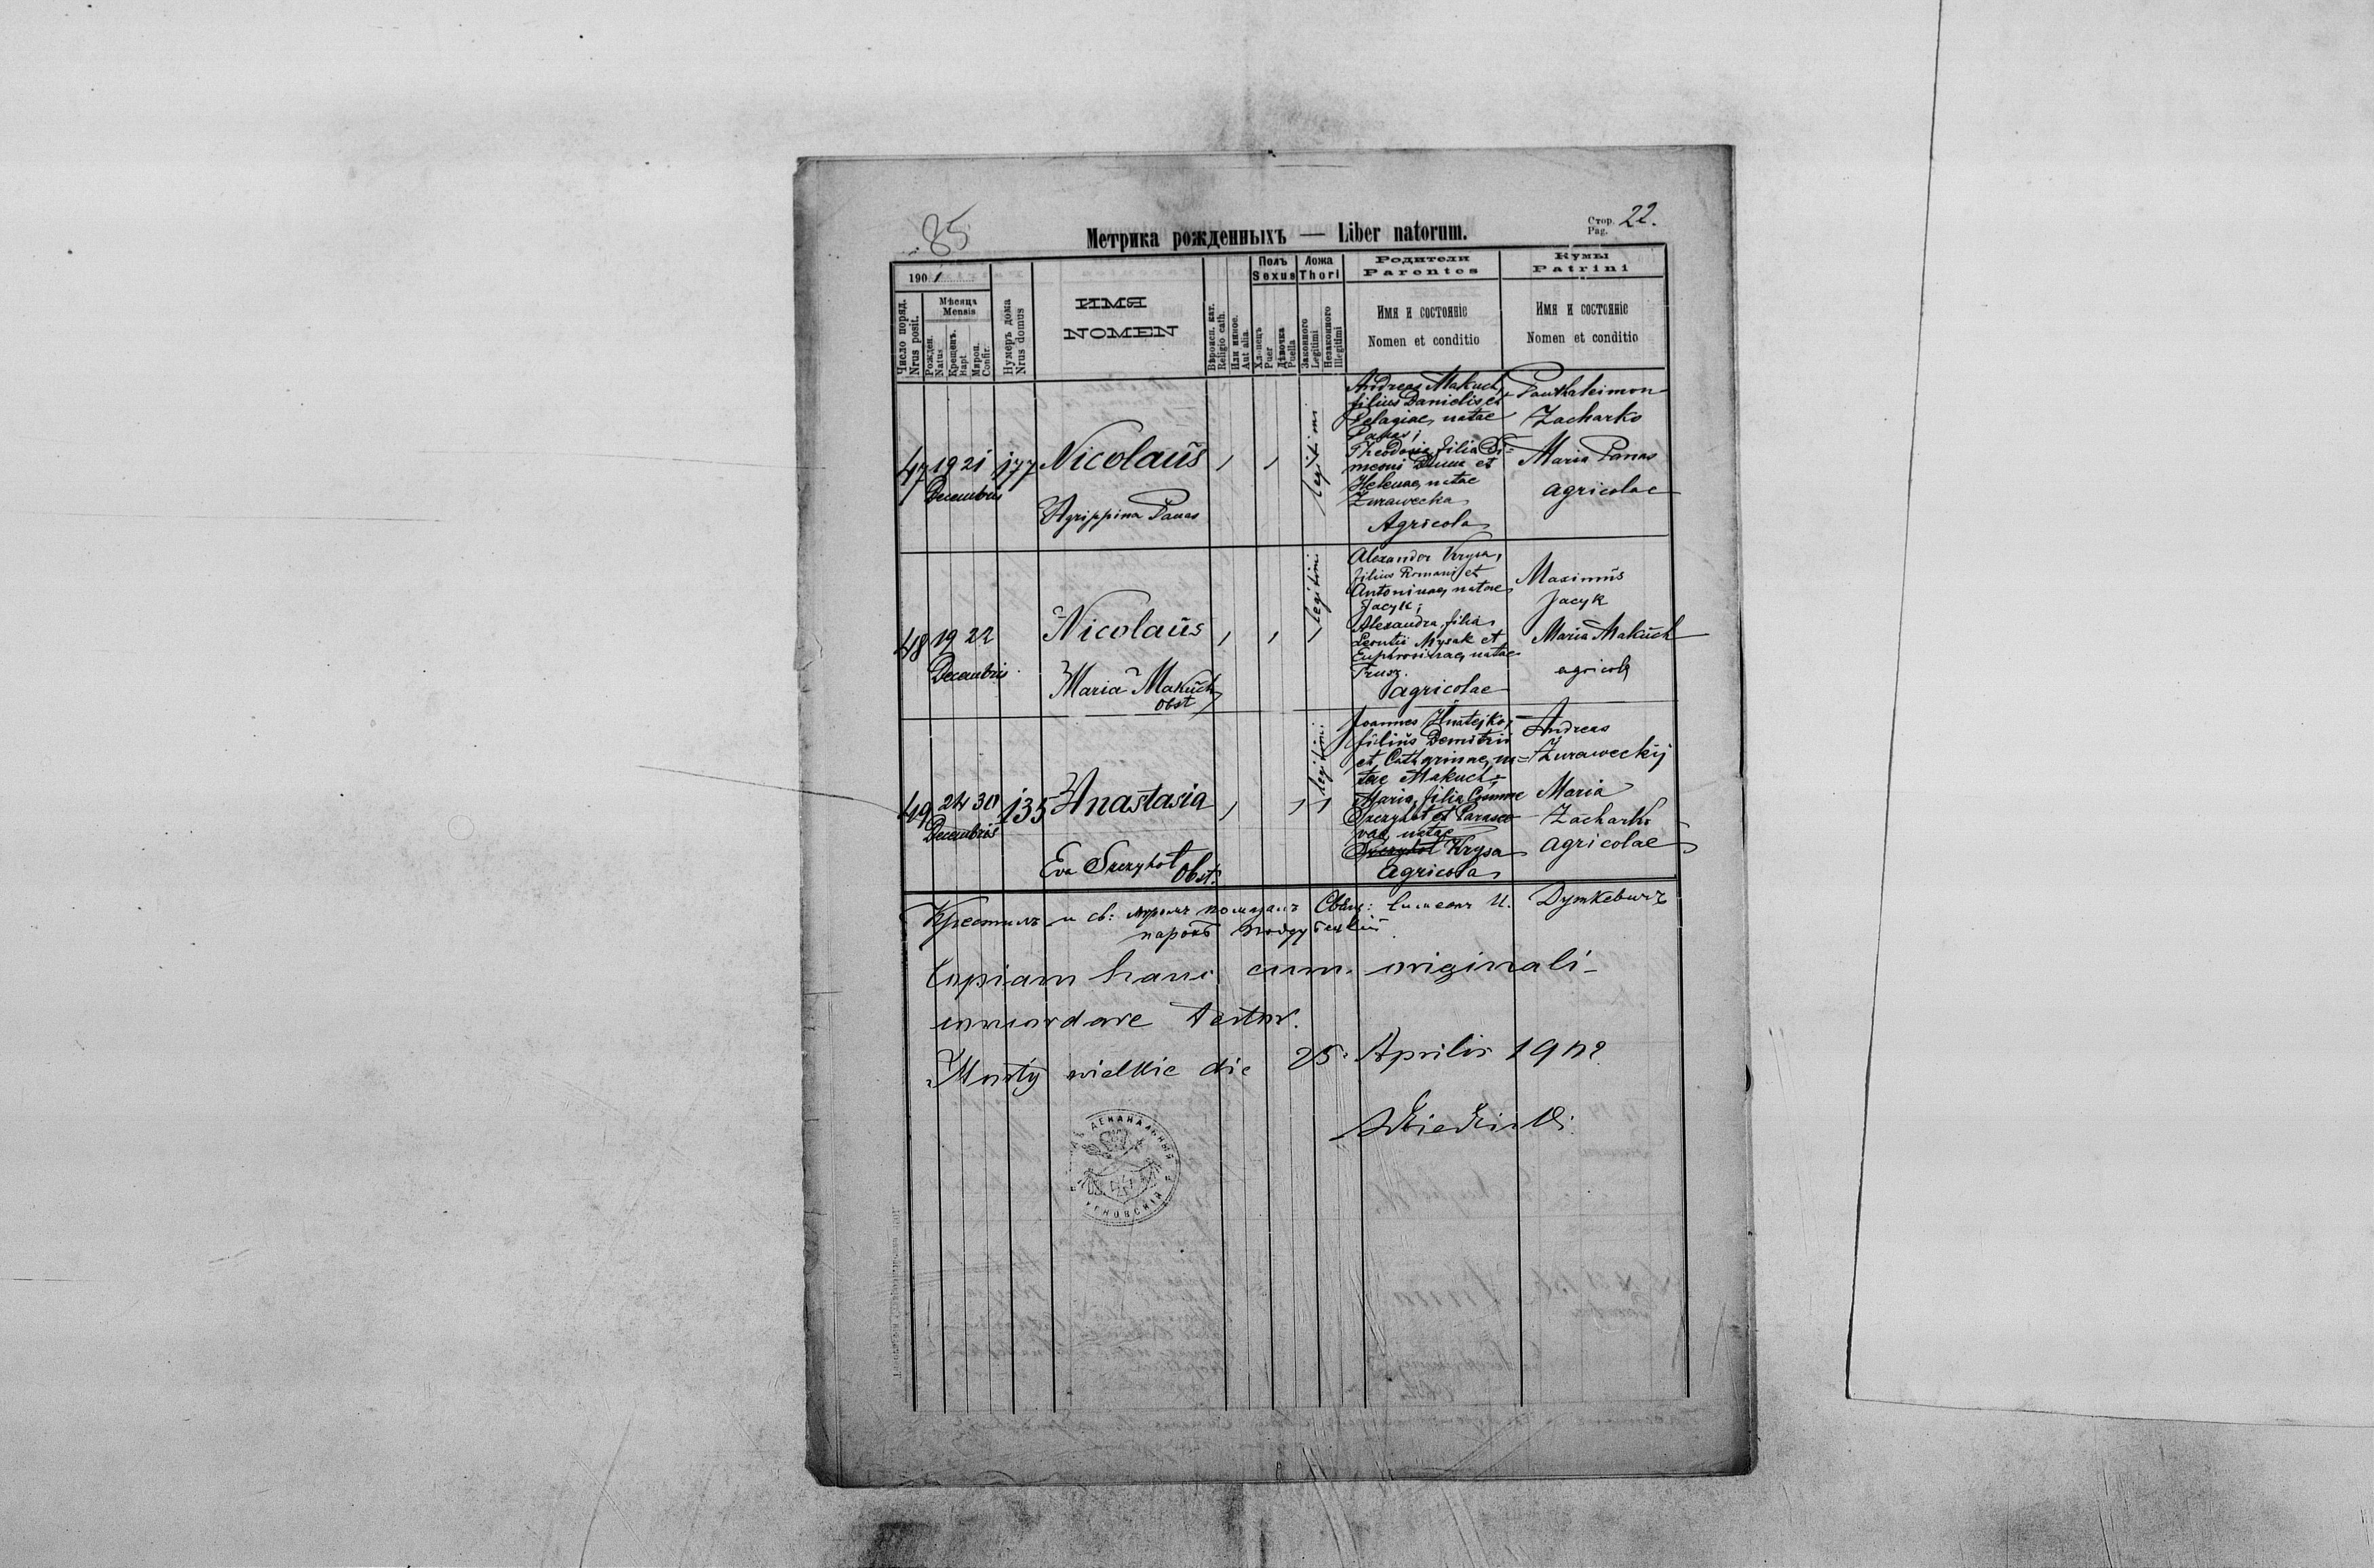 85
Метрика рожденныхъ — Liber natorum.
Стор. 22.
Pag.
1901
Число поряд. Nrus posit.
Мѣсяца
Mensis
Рожден. Natus
Крещенъ. Bapt.
Миров. Confir.
Нумеръ дома Nrus domus
ИМЯ
NOMEN
Вѣроисп. кат. Religio cath.
Или инное. Aut alia.
Полъ
Sexus
Хлопецъ Puer
Дѣвочка Puella
Ложа
Thori
Законного Legitimi
Незаконного Illegitimi
Родители
Parentes
Имя и состояніе
Nomen et conditio
Кумы
Patrini
Имя и состояніе
Nomen et conditio
47 19 21 177 Nicolaus
Decembris
Agrippina Panas
legitimi
Andreas Makuch,
filius Danielis et
Pelagiae, natae
Panas;
Theodosia, filia Si-
meoni et
Helenae, natae
Zurawecka
Agricola
Panthaleimon
Zacharko
Maria Panas
agricolae
48 19 22 Nicolaus
Decembris
Maria Makuch
obst
legitimi
Alexander Krysa,
filius Romani et
Antoninae, natae
Jacyk;
Alexandra, filia
Leontii Mysak et
Euphrosinae, natae
Trusz.
agricolae
Maximus
Jacyk
Maria Makuch
agricolae
49 24 30 135 Anastasia
Decembris
Eva Szczyhot
Obst.
legitimi
Joannes Hnatejko,
filius Demitrii
et Catharinae, na=
tae Makuch;
Maria, filia Cosmae
Szczyhot et Parasce-
vae, natae
Szczyhot Krysa
agricola
Andreas
Zuraweckij
Maria
Zacharko
agricolae
Крестилъ и св: мѵромъ помазалъ Свящ: Симеонъ И. Дуткевичъ
парохъ
Copiam hanc cum originali
concordare testor.
Mosty wielkie die 25. Aprilis 1902
ДЕКАНАЛЬНЫЙ